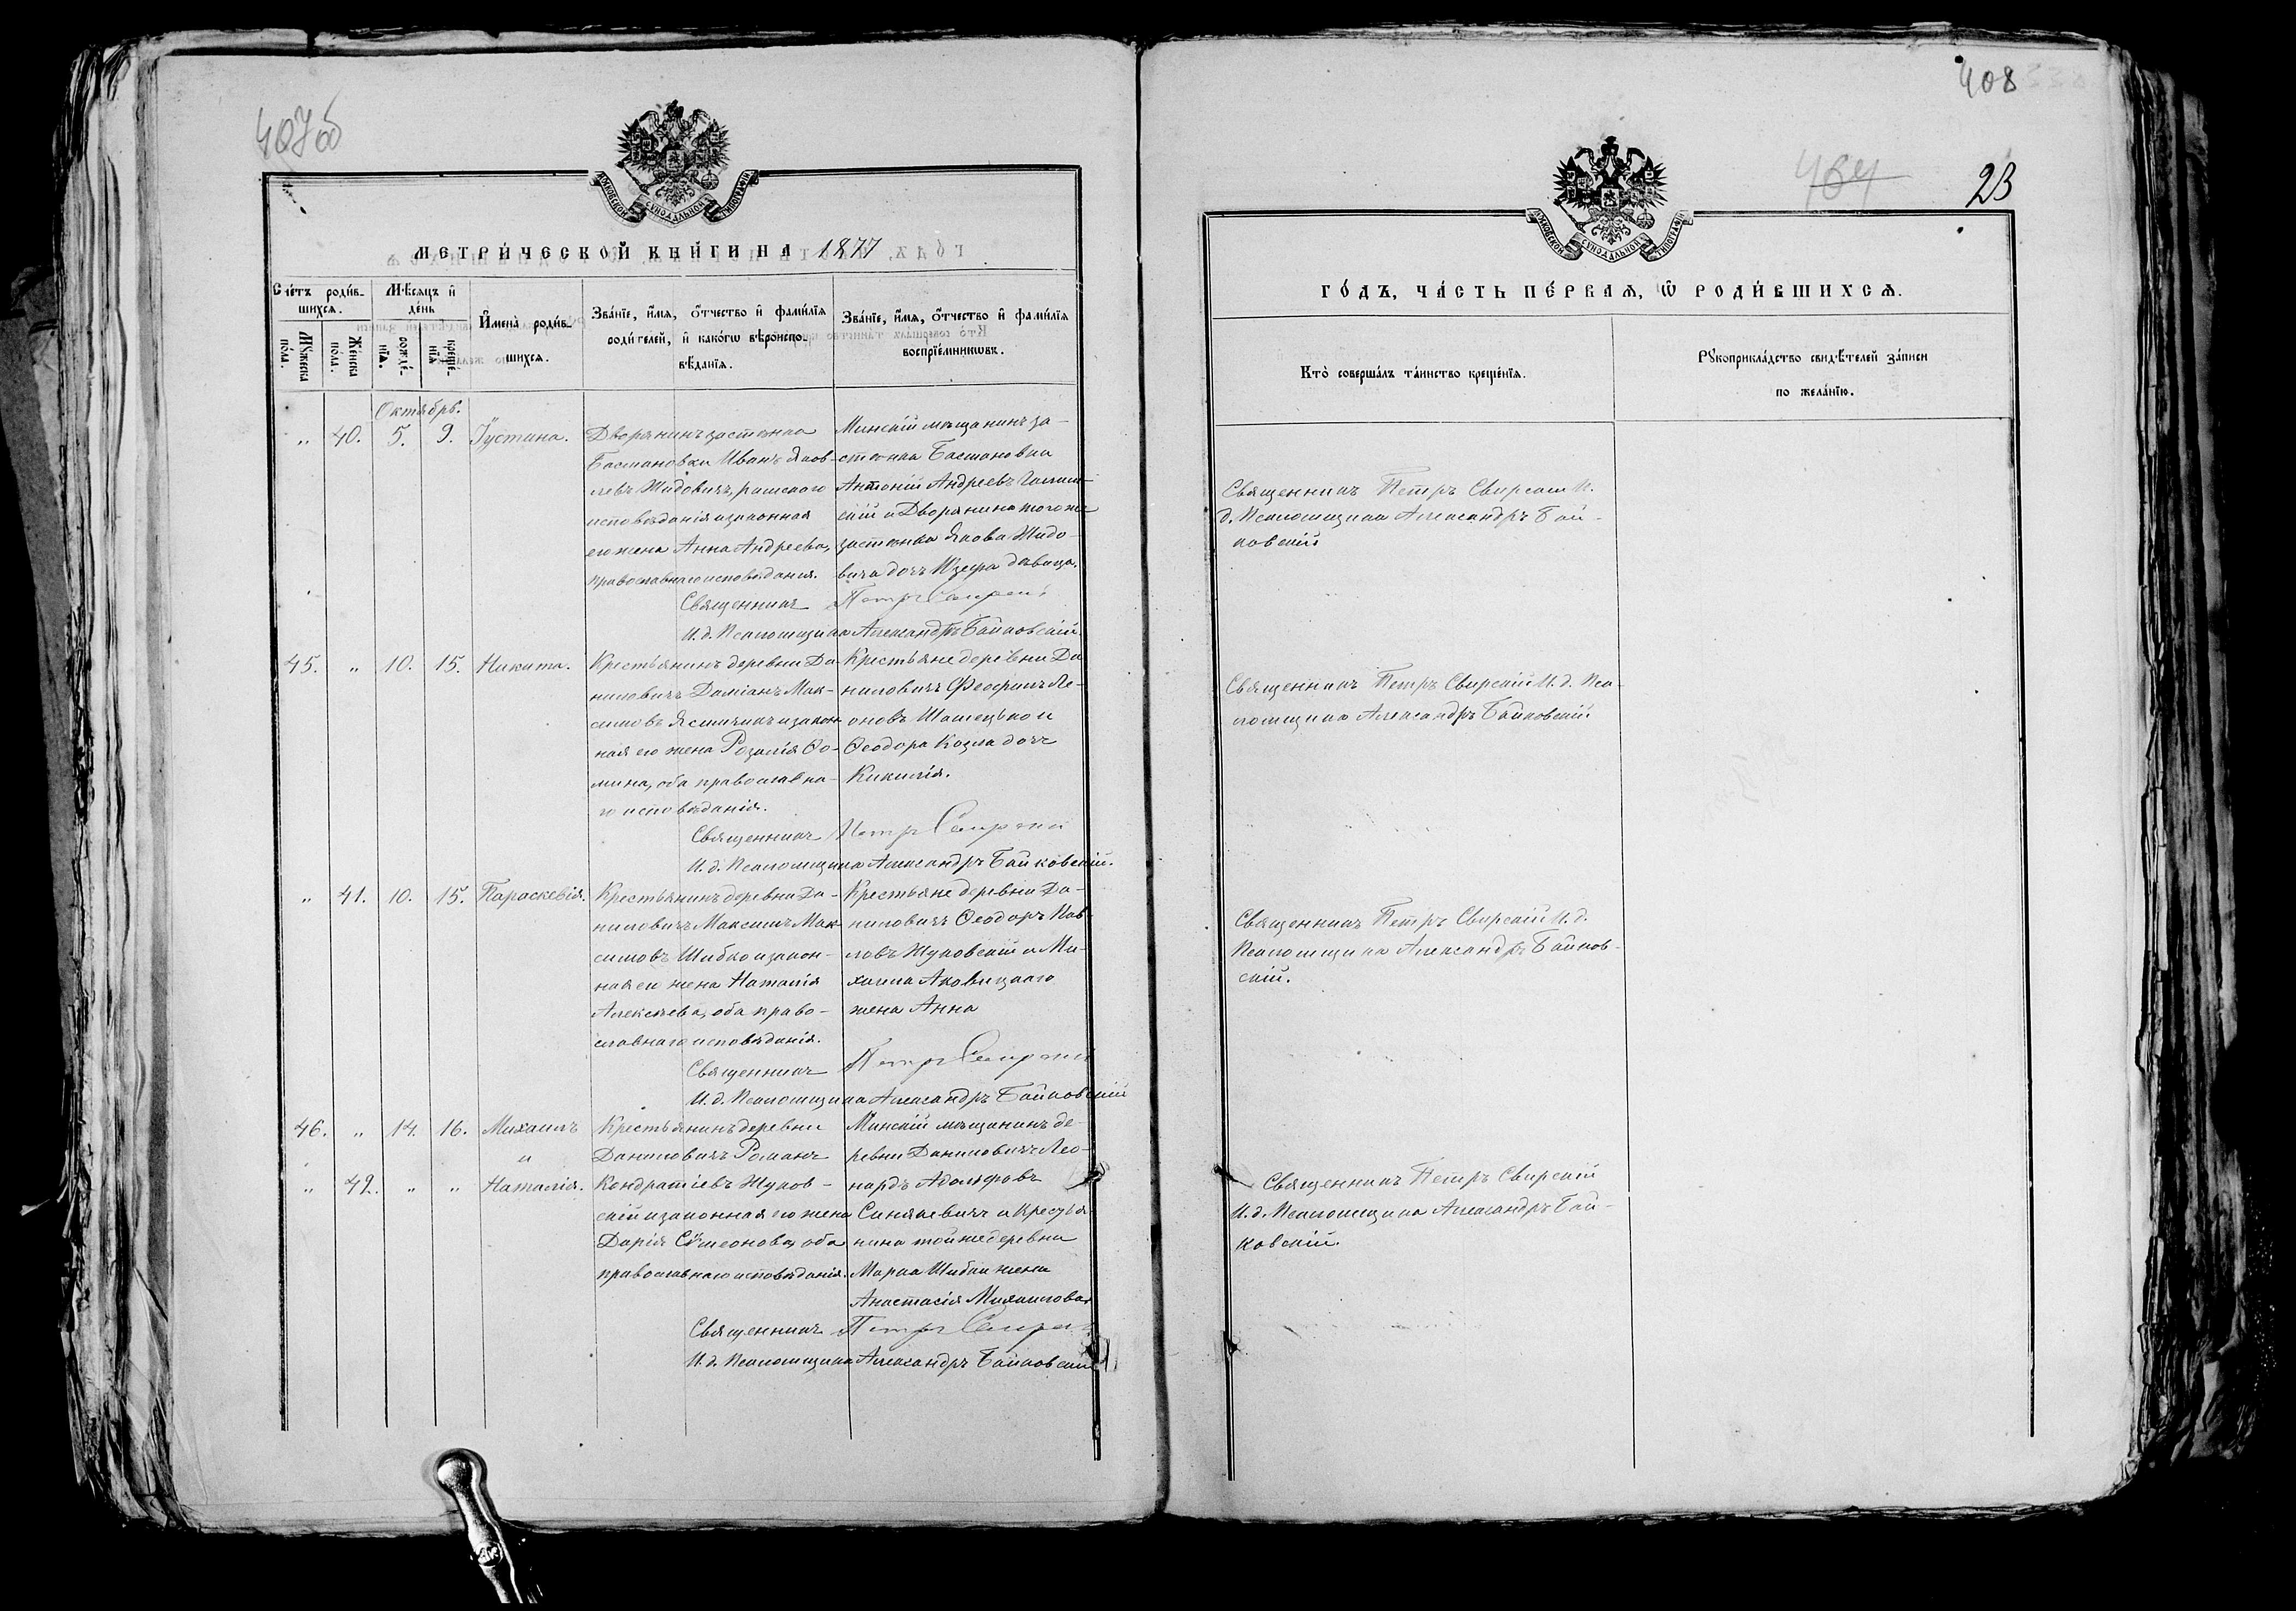 407об
МОСКОВСКОЙ СѴНОДАЛЬНОЙ ТИПОГРАФІИ
МЕТРИ́ЧЕСКОЙ КНИ́ГИ НА 1877
Сче́тъ роди́вшихсѧ.
Мꙋ́жеска по́ла.
Же́нска по́ла.
Мѣ́сѧцъ и҆ де́нь
рожде́-нїѧ.
креще́-нїѧ.
И҆мена̀ роди́в-
шихсѧ.
Зва́нїе, и҆́мѧ, ѻ҆́тчество и҆ фами́лїѧ
роди́телей, и҆ како́гѡ вѣроиспо-
вѣ́данїѧ.
Зва́нїе, и҆́мѧ, ѻ҆́тчество и҆ фами́лїѧ
воспрїе́мникѡвъ.
Октябрь.
„ 40. 5. 9. Іустина.
Дворянинъ застѣнка
Басмановки Иванъ Яков-
левъ Жидовичъ, римского
исповѣданія и законная
его жена Анна Андреева,
православнаго исповѣданія.
Минскій мѣщанинъ за-
стѣнка Басмановки
Антоній Андреевъ
скій и Дворянина того же
застѣнка Якова Жидо-
вича дочь Юзефа дѣвица.
Священникъ Петръ Свирскій
И. д. Псаломщика Александръ Байковскій.
45. „ 10. 15. Никита.
Крестьянинъ деревни Да-
ниловичъ Даміанъ Мак-
симовъ Ясючикъ и закон
ная его жена Розалія Ѳо-
мина, оба православна-
го исповѣданія.
Крестьяне деревни Да
ниловичъ Феофилъ Ле-
оновъ Шамецько и
Ѳеодора Козла дочь
Кикилія.
Священникъ Петръ Свирскій
И. д. Псаломщика Александръ Байковскій.
„ 41. 10. 15. Параскевія.
Крестьянинъ деревни Да-
ниловичъ Максимъ Мак
симовъ Шибко и закон-
ная его жена Наталія
Алексѣева, оба право-
славнаго исповѣданія.
Крестьяне деревни Да-
ниловичъ Ѳеодоръ Пав-
ловъ Жуковскій и Ми-
хаила Аковицкаго
жена Анна
Священникъ Петръ Свирскій
И. д. Псаломщика Александръ Байковскій
46. „ 14. 16. Михаилъ
и
„ 42. „ „ Наталія.
Крестьянинъ деревни
Даниловичъ Романъ
Кондратіевъ Жуков-
скій и законная его жена
Дарія Сѵмеонова, оба
православнаго исповѣданія.
Минскій мѣщанинъ де-
ревни Даниловичъ Лео-
нардъ Адольфовъ
Синякевичъ и Крестья
нина той же деревни
Марка Шибки жена
Анастасія Михаилова
Священникъ Петръ Свирскій
И. д. Псаломщика Александръ Байковскій
408
464
23
МОСКОВСКОЙ СѴНОДАЛЬНОЙ ТИПОГРАФІИ
ГО́ДЪ, ЧА́СТЬ ПЕ́РВАѦ, Ѡ҆ РОДИ́ВШИХСѦ.
Кто̀ соверша́лъ та́инство креще́нїѧ.
Рꙋкоприкла́дство свидѣ́телей за́писи
по жела́нїю.
Священникъ Петръ Свирскій И.
д. Псаломщика Александръ Бай-
ковскій
Священникъ Петръ Свирскій И. д. Пса-
ломщика Александръ Байковскій
Священникъ Петръ Свирскій И. д.
Псаломщика Александръ Байков-
скій.
Священникъ Петръ Свирскій
И. д. Псаломщика Александръ Бай-
ковскій.